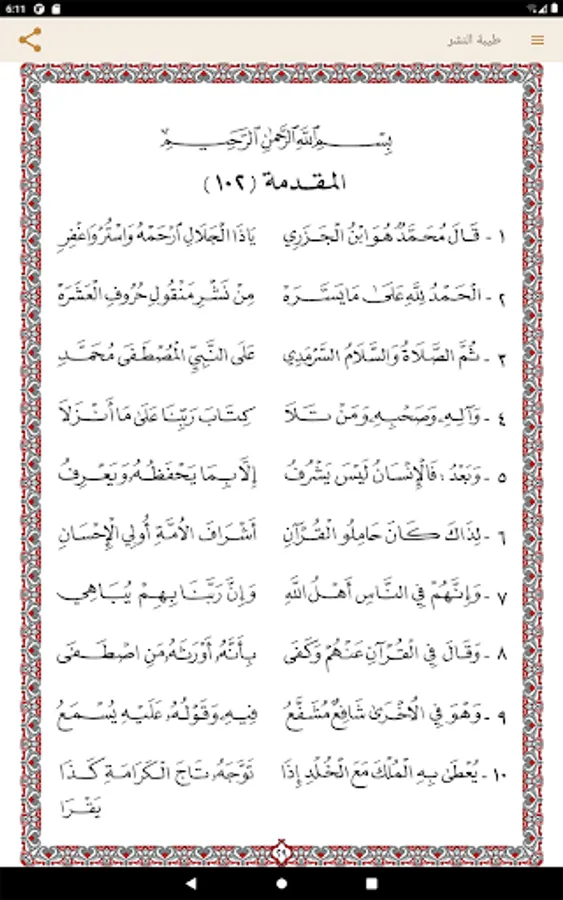 6:11
طيبة النشر
بِسْمِ ٱللَّهِ ٱلرَّحْمَٰنِ ٱلرَّحِيمِ
المقدمة (١٠٢)
١ - قَالَ مُحَمَّدٌ هُوَ ابْنُ الْجَزَرِي يَاذَا الْجَلَالِ ارْحَمْهُ وَاسْتُرْ وَاغْفِرِ
٢ - الْحَمْدُ لِلَّهِ عَلَىٰ مَا يَسَّرَهْ مِنْ نَشْرِ مَنْقُولِ حُرُوفِ الْعَشَرَهْ
٣ - ثُمَّ الصَّلَاةُ وَالسَّلَامُ السَّرْمَدِي عَلَى النَّبِيِّ الْمُصْطَفَى مُحَمَّدِ
٤ - وَآلِهِ وَصَحْبِهِ وَمَنْ تَلَا كِتَابَ رَبِّنَا عَلَىٰ مَا أَنْزَلَا
٥ - وَبَعْدُ : فَالْإِنْسَانُ لَيْسَ يَشْرُفُ إِلَّا بِمَا يَحْفَظُهُ وَيَعْرِفُ
٦ - لِذَاكَ كَانَ حَامِلُو الْقُرْآنِ أَشْرَافَ الْأُمَّةِ أُولِي الْإِحْسَانِ
٧ - وَإِنَّهُمْ فِي النَّاسِ أَهْلُ اللَّهِ وَإِنَّ رَبَّنَا بِهِمْ يُبَاهِي
٨ - وَقَالَ فِي الْقُرْآنِ عَنْهُمْ وَكَفَى بِأَنَّهُ أَوْرَثَهُ مَنِ اصْطَفَى
٩ - وَهْوَ فِي الْأُخْرَىٰ شَافِعٌ مُشَفَّعُ فِيهِ وَقَوْلُهُ عَلَيْهِ يُسْمَعُ
١٠ - يُعْطَىٰ بِهِ الْمُلْكَ مَعَ الْخُلْدِ إِذَا تَوَّجَهُ تَاجَ الْكَرَامَةِ كَذَا
يَقْرَا
٢٩